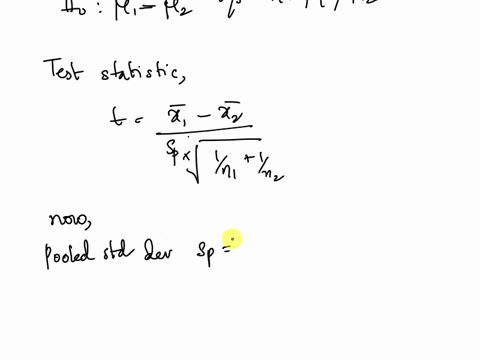 H₀ : μ₁ = μ₂
Test statistic,
t = x̄₁ − x̄₂ / Sp × √(1/n₁ + 1/n₂)
now,
Pooled std dev Sp =